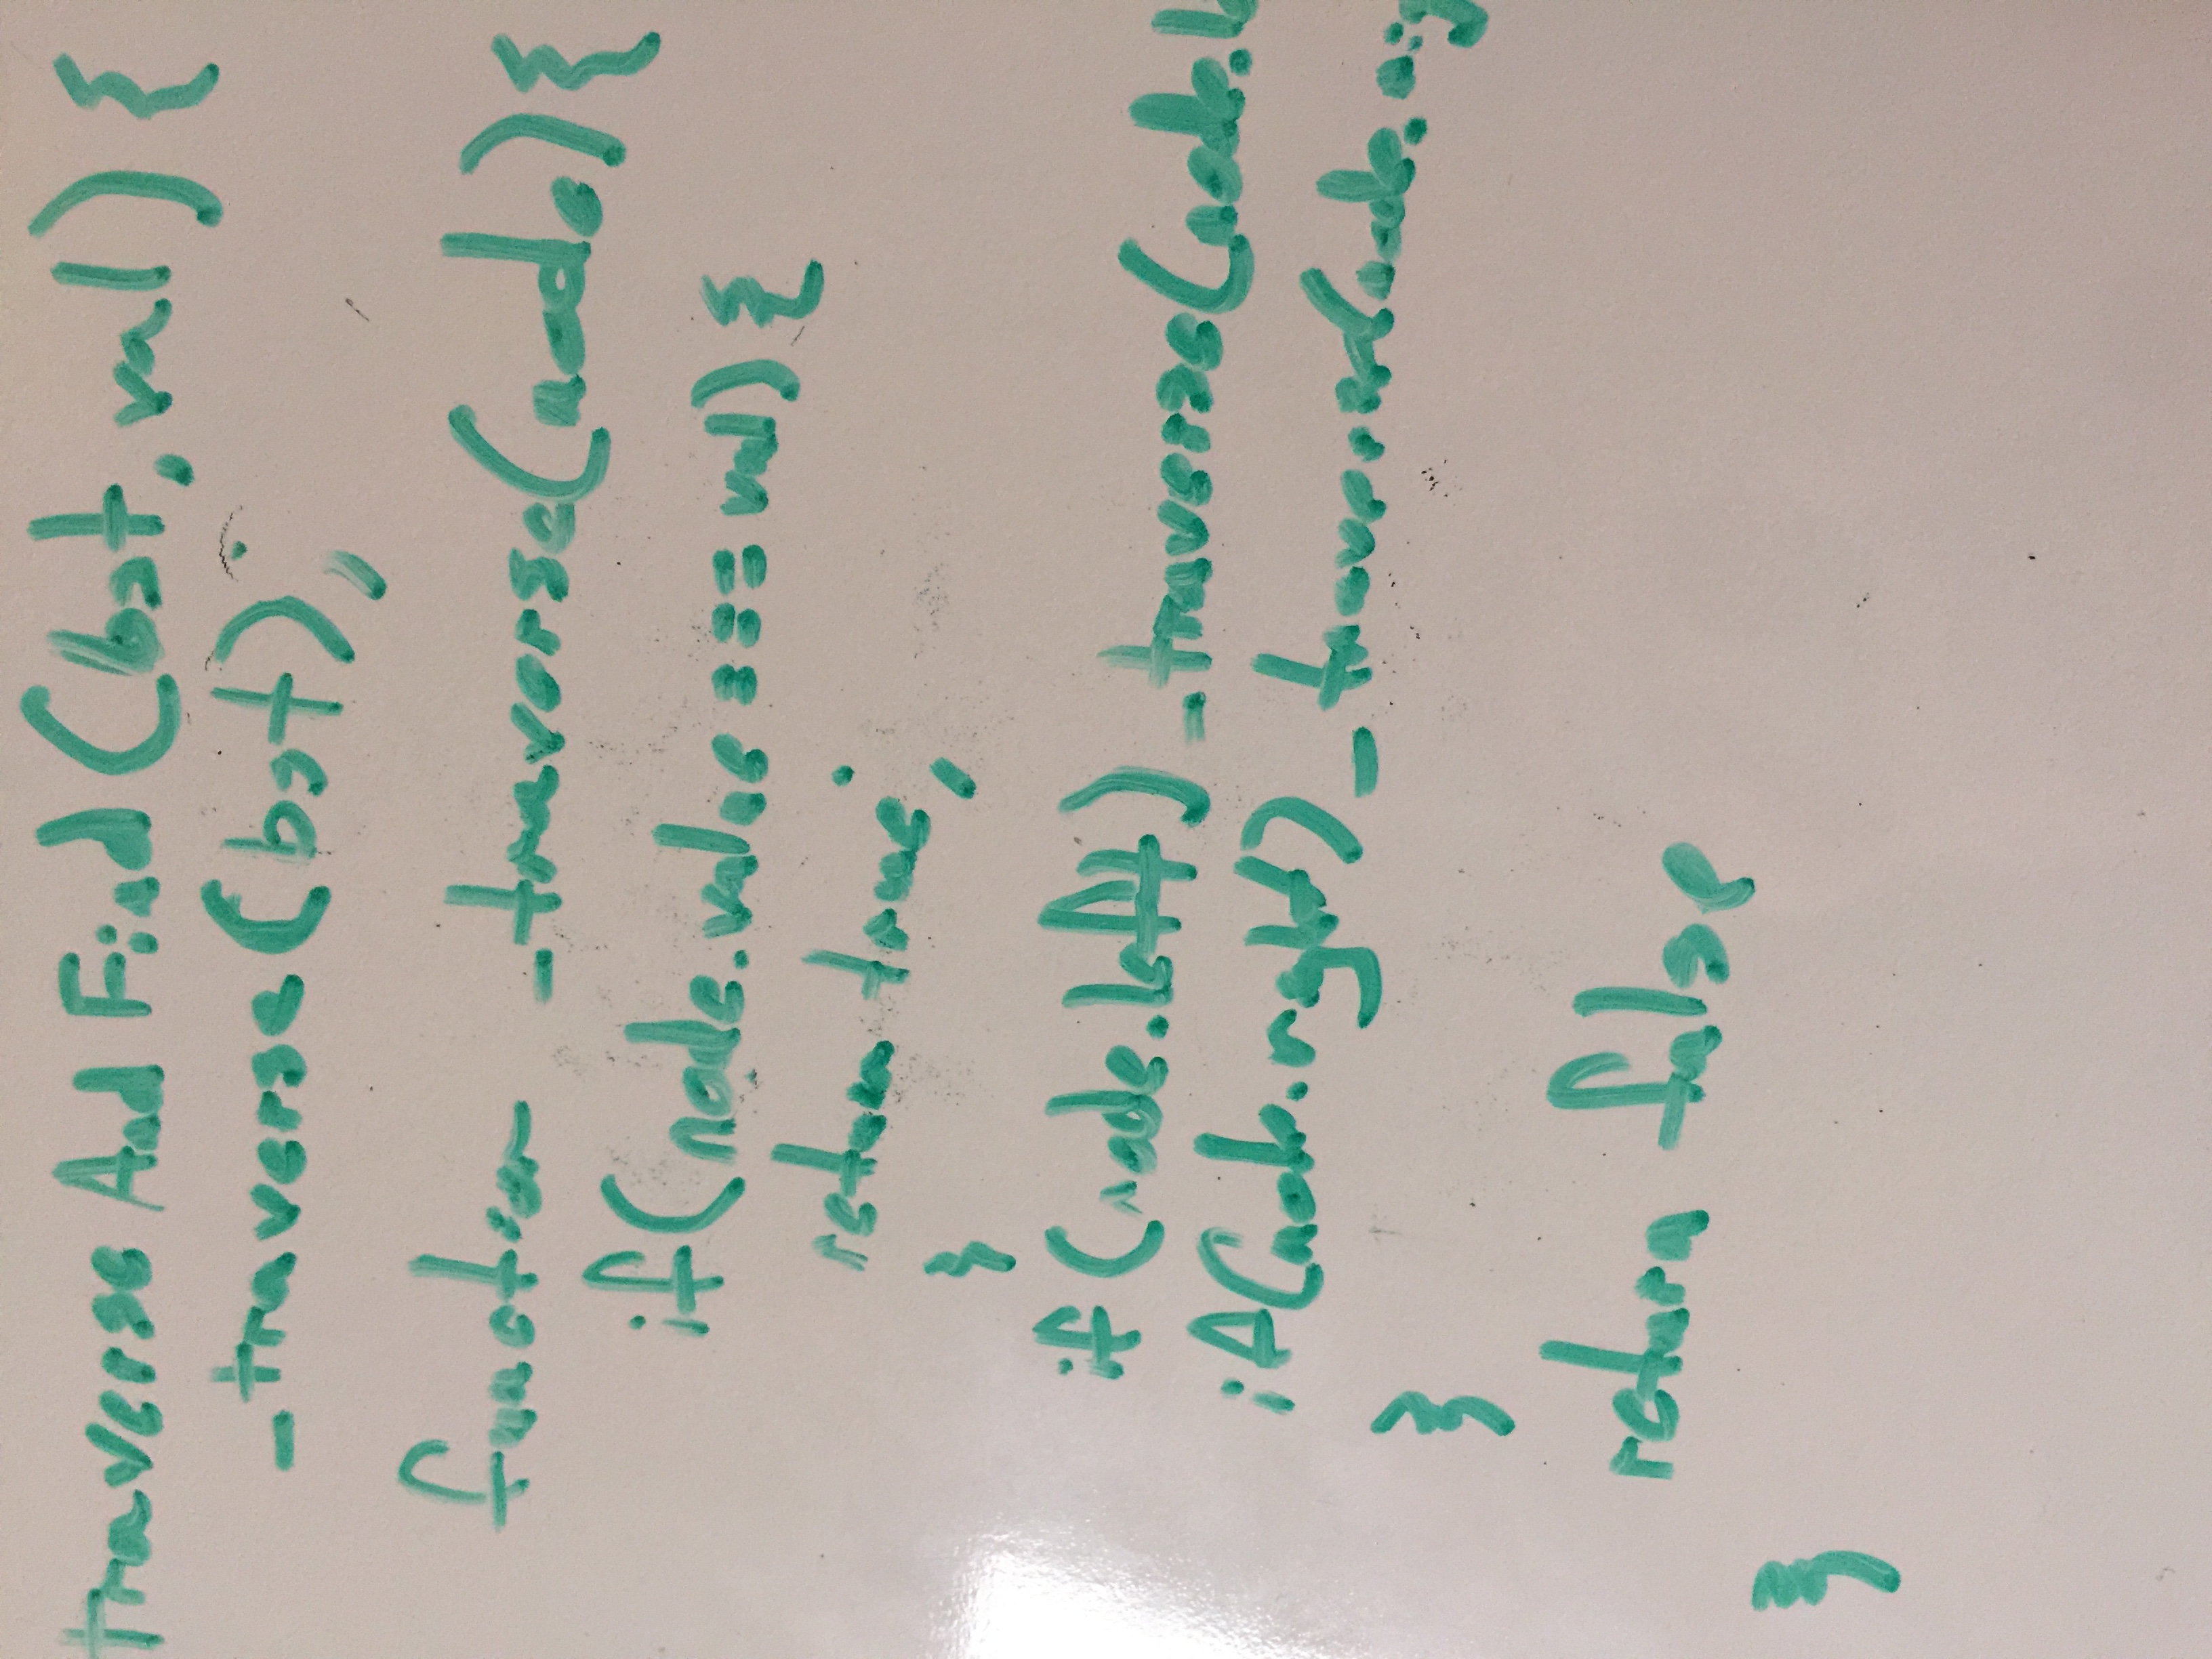 traverse And Find (bst, val) {
_traverse(bst);
function _traverse(node){
if(node.value === val){
return true;
}
if (node.left) _traverse(node.l
if(node.right) _traverse(node.rig
}
return false
}